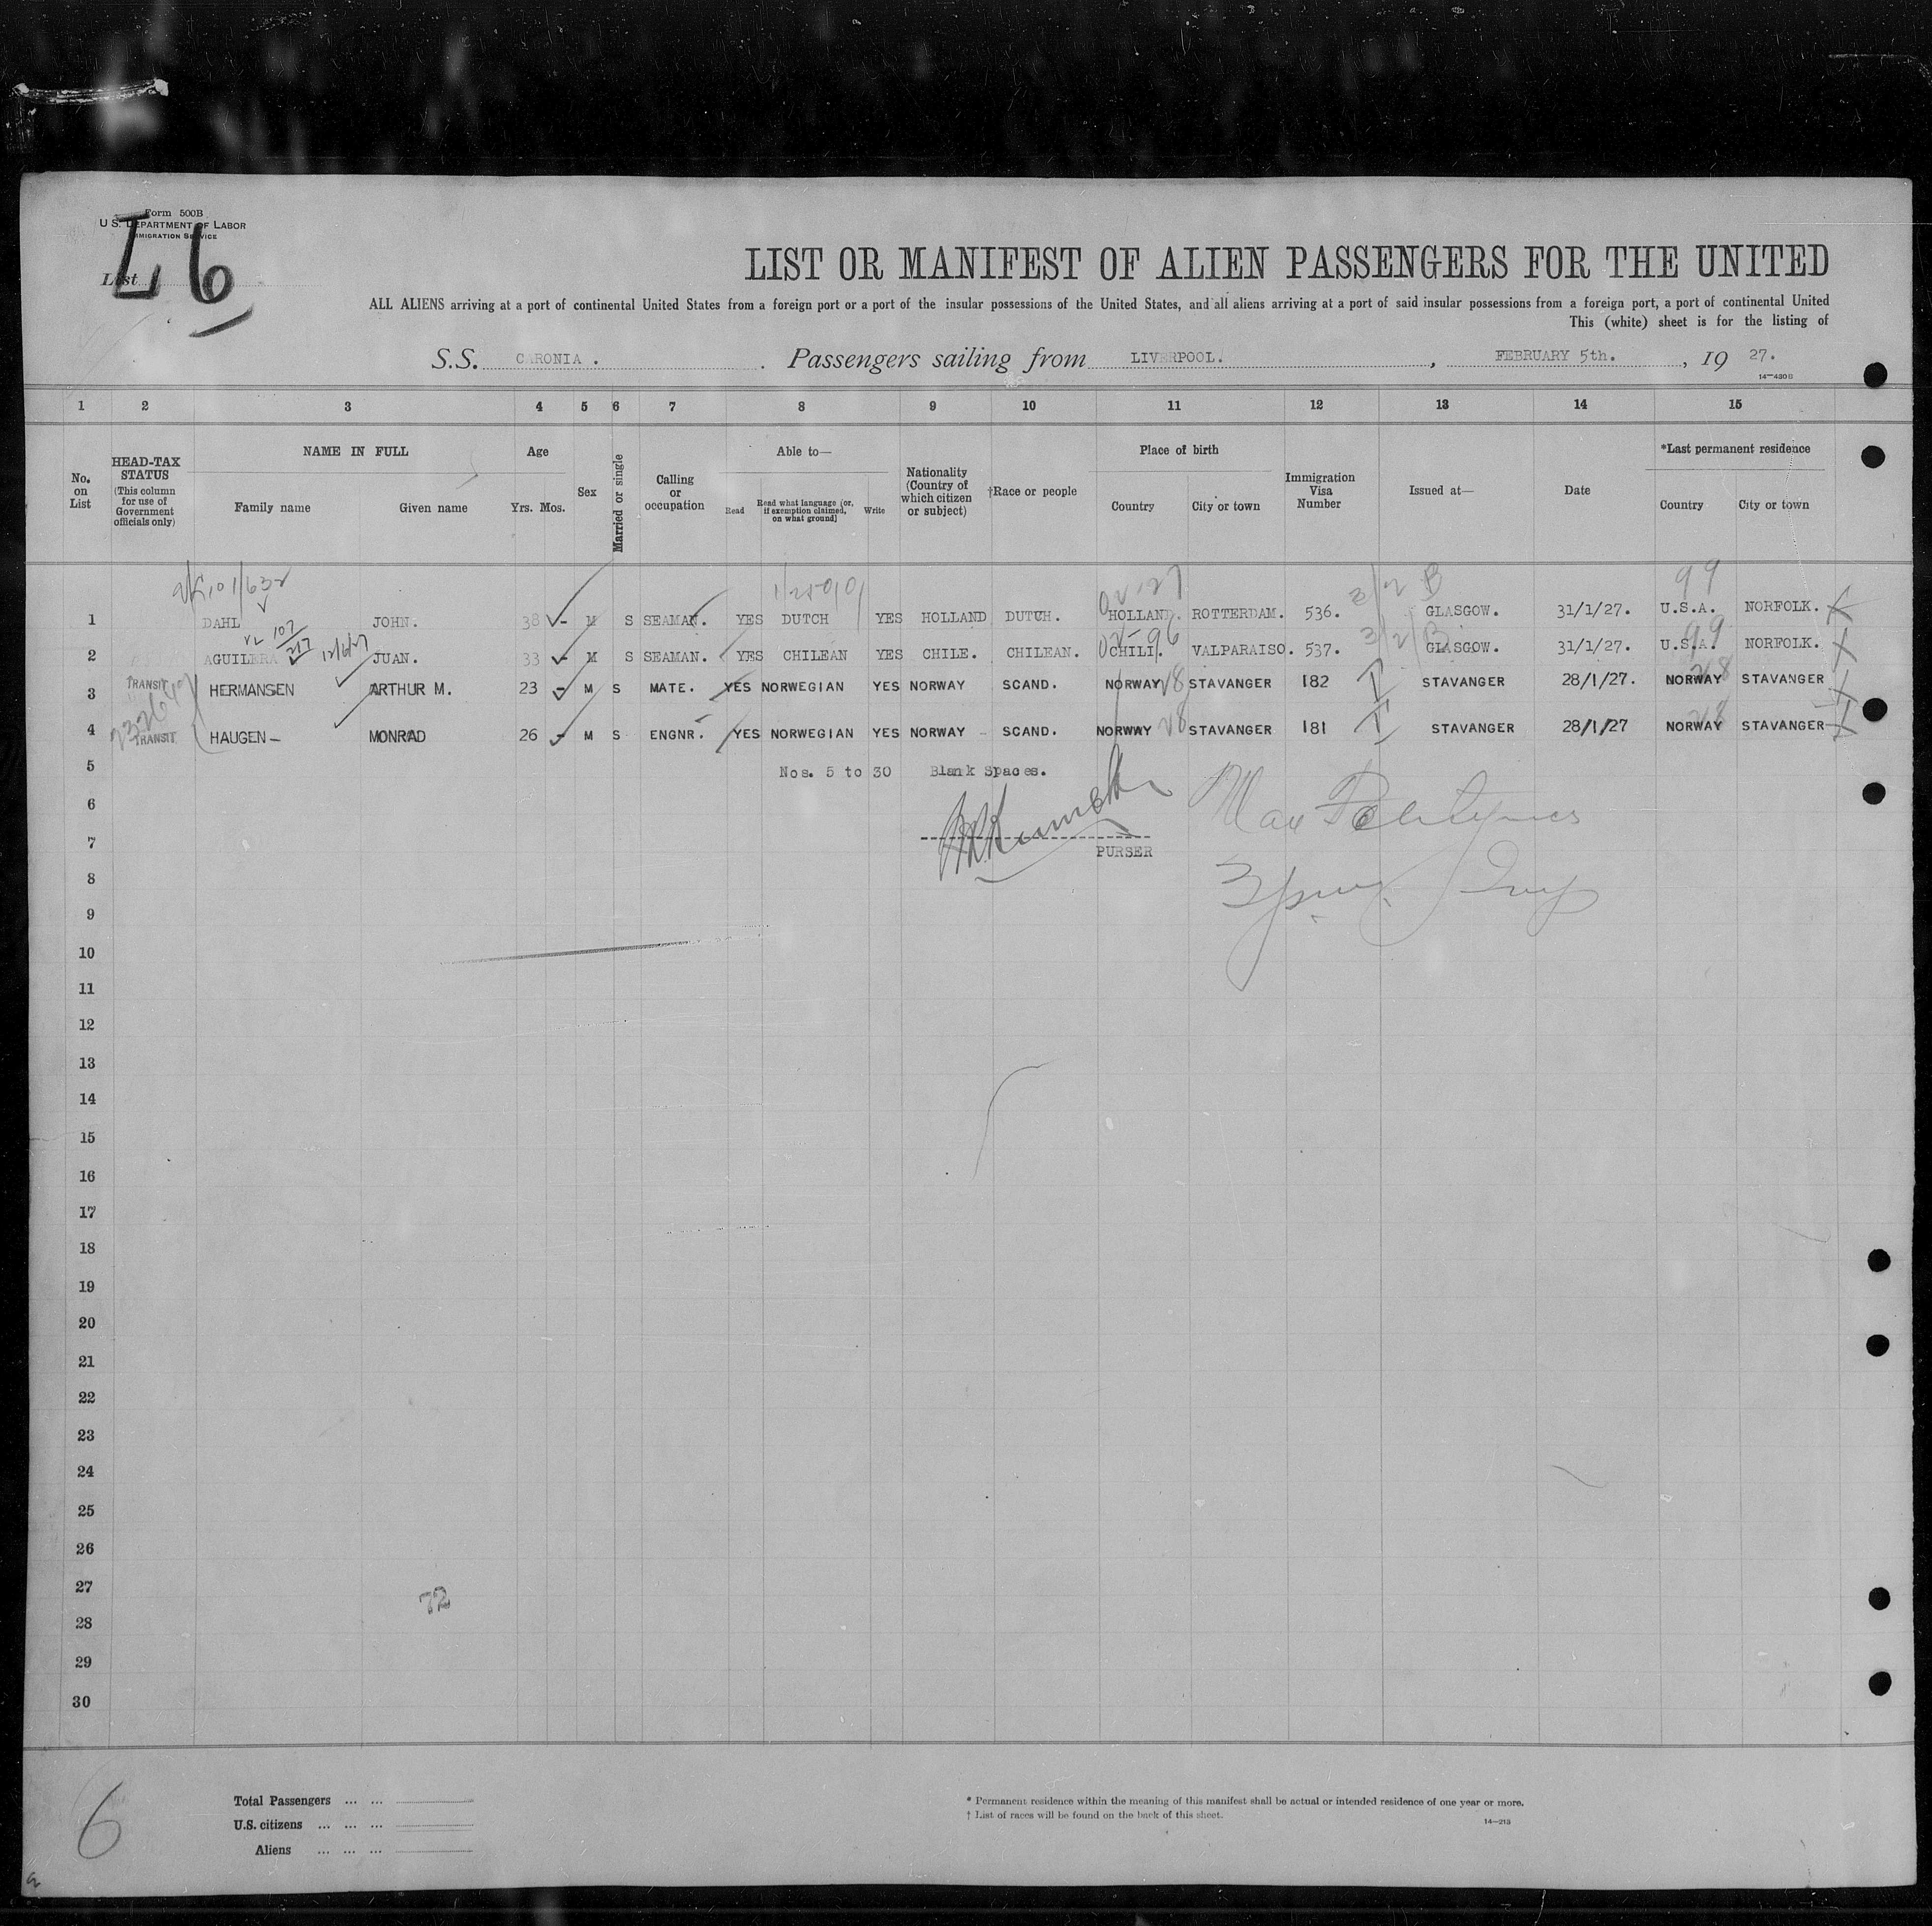 Form 500B
U. S. DEPARTMENT OF LABOR
IMMIGRATION SERVICE
List L 6
LIST OR MANIFEST OF ALIEN PASSENGERS FOR THE UNITED
ALL ALIENS arriving at a port of continental United States from a foreign port or a port of the insular possessions of the United States, and all aliens arriving at a port of said insular possessions from a foreign port, a port of continental United
This (white) sheet is for the listing of
S.S. CARONIA . Passengers sailing from LIVERPOOL. , FEBRUARY 5th. , 19 27.
14—430B
1 2 3 4 5 6 7 8 9 10 11 12 13 14 15
No. on List
HEAD-TAX STATUS (This column for use of Government officials only)
NAME IN FULL
Family name Given name
Age
Yrs. Mos.
Sex
Married or single
Calling or occupation
Able to—
Read
Read what language [or, if exemption claimed, on what ground]
Write
Nationality (Country of which citizen or subject)
†Race or people
Place of birth
Country City or town
Immigration Visa Number
Issued at—
Date
*Last permanent residence
Country City or town
99
1 DAHL JOHN. 38 - M S SEAMAN. YES DUTCH YES HOLLAND DUTCH. HOLLAND. ROTTERDAM. 536. 3/2 B GLASGOW. 31/1/27. U.S.A. NORFOLK.
107
217 12/6/27
02-96 99
2 AGUILERA JUAN. 33 - M S SEAMAN. YES CHILEAN YES CHILE. CHILEAN. CHILI. VALPARAISO. 537. 3/2/B GLASGOW. 31/1/27. U.S.A. NORFOLK.
TRANSIT
3 HERMANSEN ARTHUR M. 23 - M S MATE. YES NORWEGIAN YES NORWAY SCAND. NORWAY STAVANGER 182 T STAVANGER 28/1/27. NORWAY STAVANGER
4 TRANSIT HAUGEN - MONRAD 26 - M S ENGNR. YES NORWEGIAN YES NORWAY - SCAND. NORWAY STAVANGER 181 T STAVANGER 28/1/27 NORWAY STAVANGER
5 Nos. 5 to 30 Blank Spaces.
6
7
PURSER
8
9
10
11
12
13
14
15
16
17
18
19
20
21
22
23
24
25
26
27
72
28
29
30
6
Total Passengers ... ...
U.S. citizens ... ... ...
Aliens ... ... ...
* Permanent residence within the meaning of this manifest shall be actual or intended residence of one year or more.
† List of races will be found on the back of this sheet.
14—213